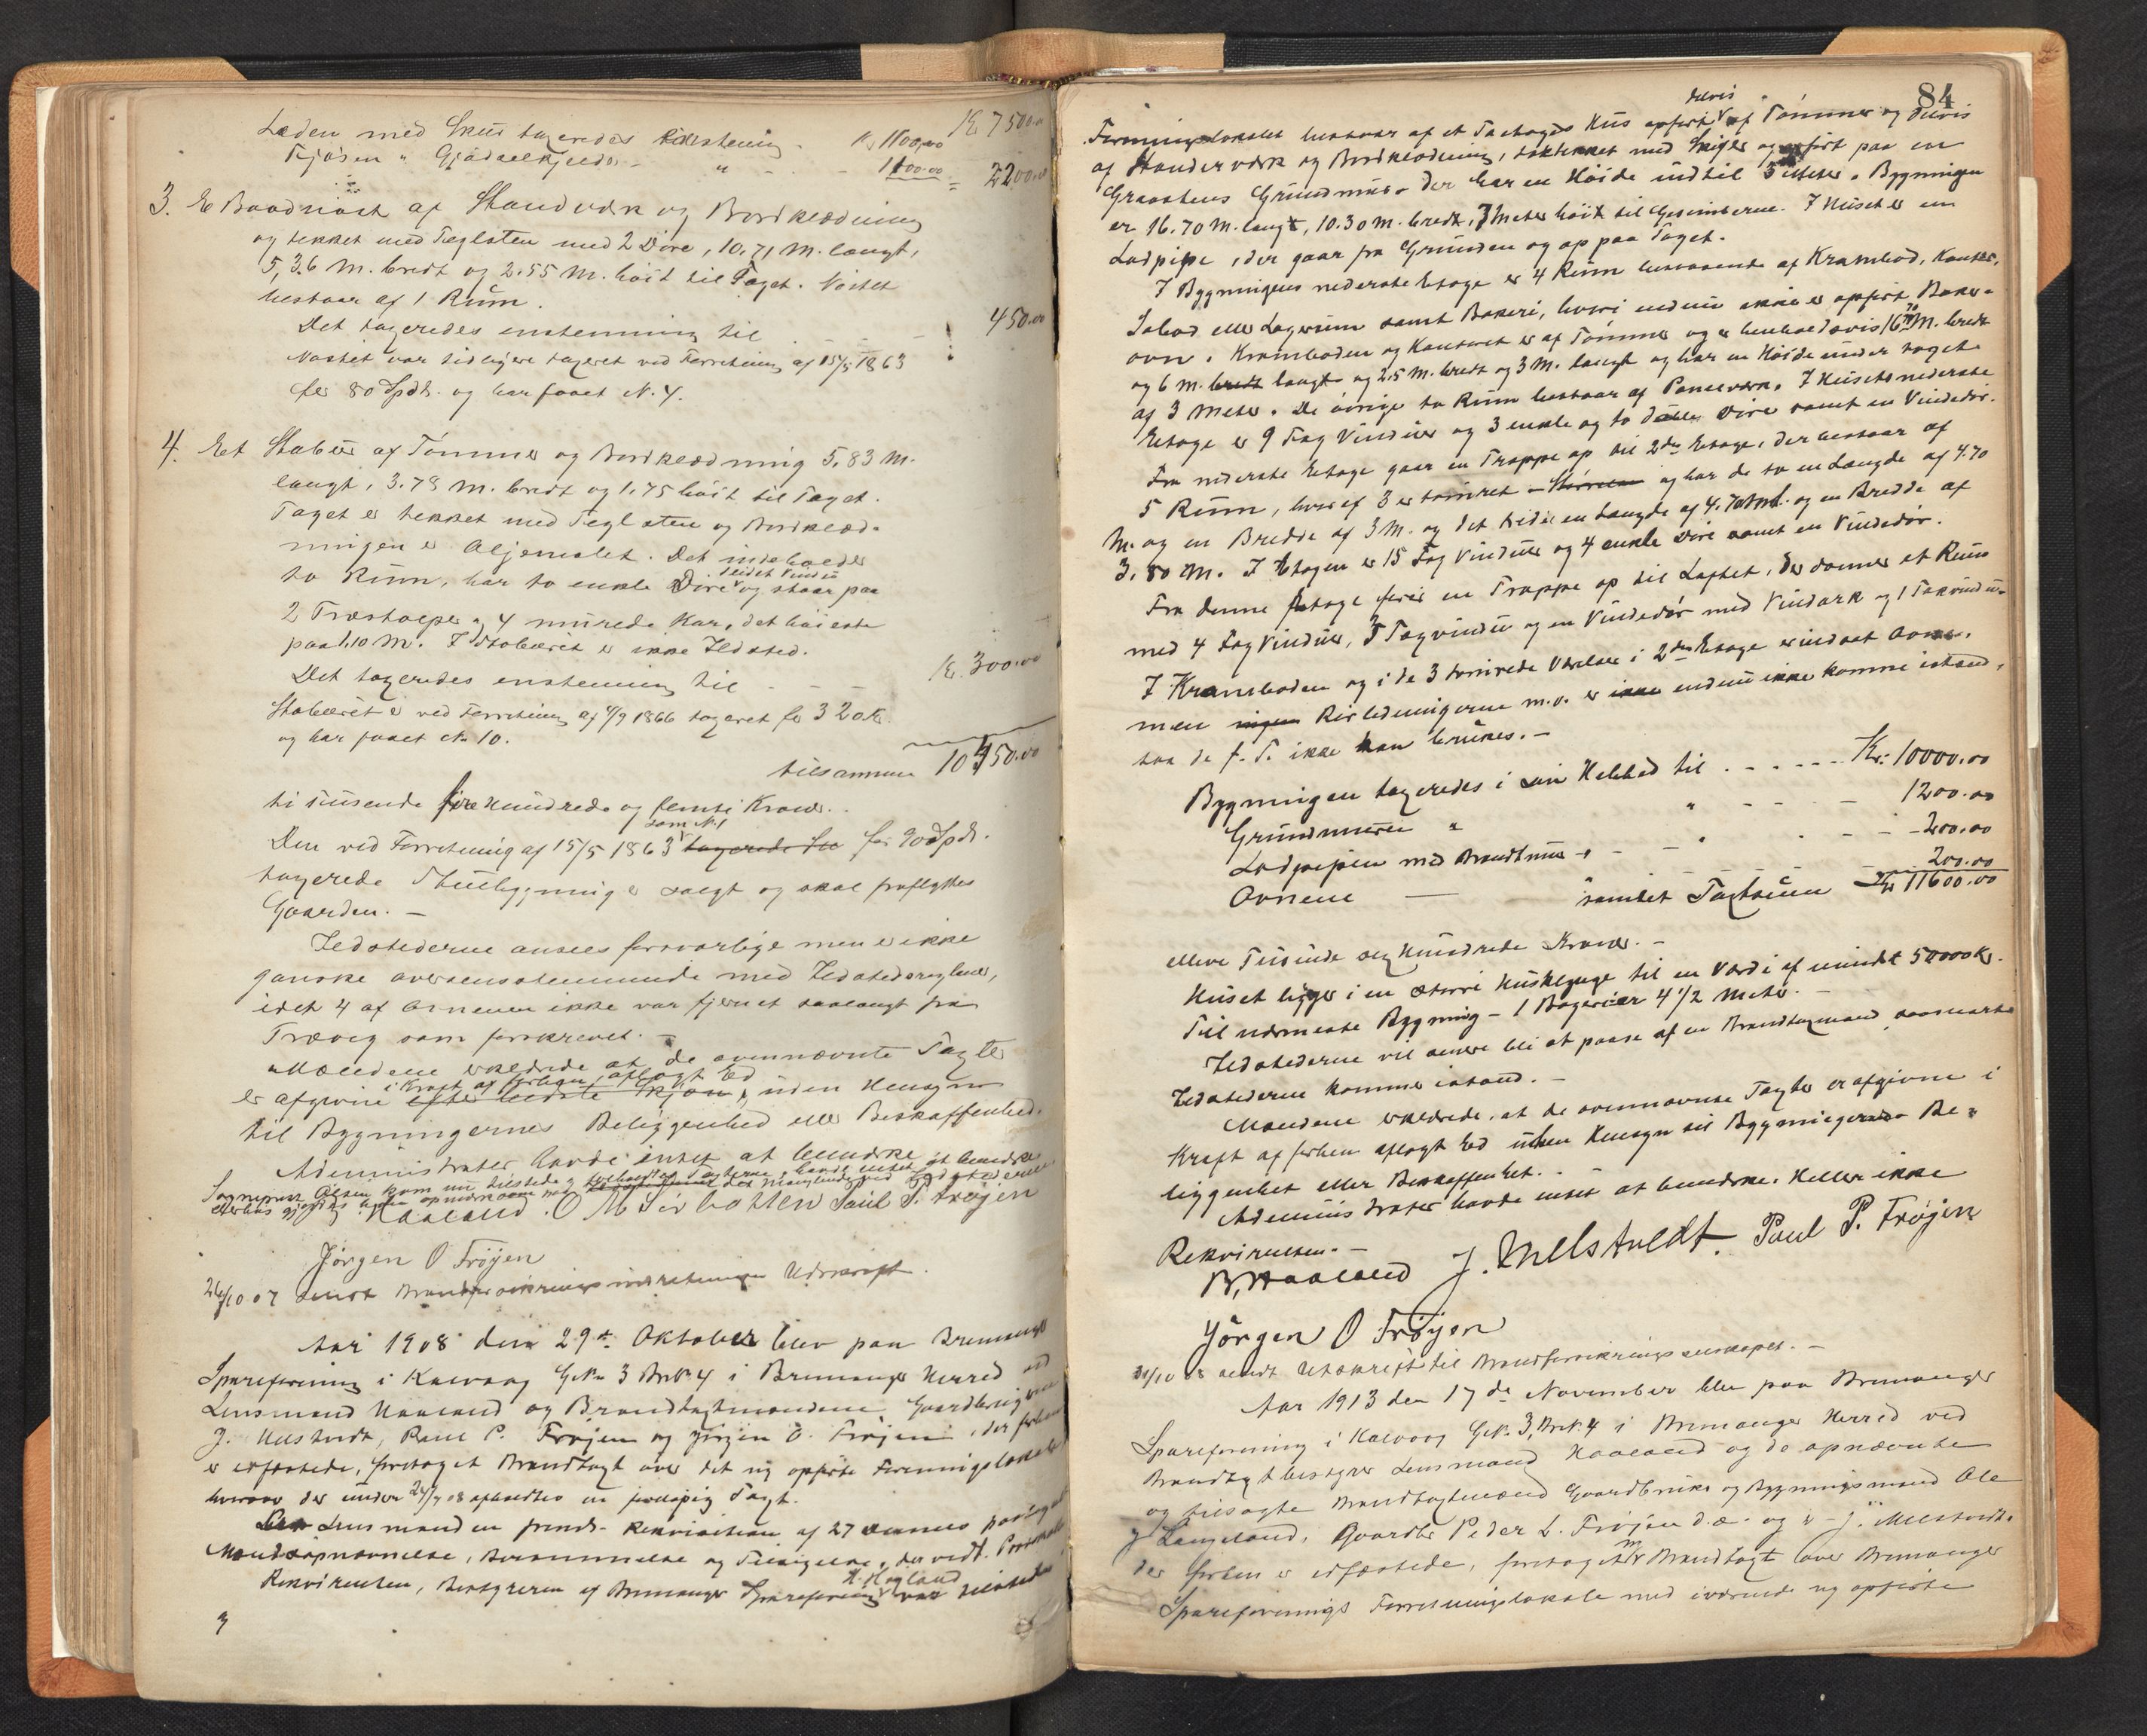 Kr 7500.00
Laden med Skur taxeredes enstemmig - Kr 1100,00
Fjøsen " Gjødselkjelder - " - - 1100.00 = 2200.00
3. Et Baadnøst af Standværk og Bordklædning
og tekket med Teglsten med 2 Døre, 10,71 M. langt,
5,36 M. bredt og 2.55 M. høit til Taget. Nøstet
bestaar af 1 Rum.
Det taxeredes enstemmig til - - - 450.00
Nøstet var tidligere taxeret ved Forretning af 15/5 1863
for 80 Spdl. og har faaet N. 4.
4. Et Stabur af Tømmer og Bordklædning 5,83 M.
langt, 3.78 M. bredt og 1.75 høit til Taget.
Taget er tekket med Teglsten og Bordklæd-
ningen er Oljemalet. Det indeholder
to Rum, har to enkle Døre og staar paa
2 Træstolper og 4 murede Kar, det høieste
paa 1.10 M. I Staburet er ikke Ildsted.
Det taxeredes enstemmig til - - - Kr. 300.00
Staburet er ved Forretning af 4/9 1866 taxeret for 320 Kr.
og har faaet N. 10.
tilsammen 10450.00
ti tusende fire Hundrede og femti Kroner.
som N. 1
Den ved Forretning af 15/5 1863 taxerede for 90 Spdl.
taxerede Stuebygning er solgt og skal fraflyttes
Gaarden. -
Ildstederne ansees forsvarlige men er ikke
ganske overensstemmende med Ildstedsreglerne,
idet 4 af Ovnene ikke var fjernet saalangt fra
Trævæg som forskrevet. -
Mændene erklærede at de ovennævnte Taxter
i Kraft af forhen aflagt Ed
er afgivne efter bedste Skjøn, uden Hensyn
til Bygningernes Beliggenhed eller Beskaffenhed.
Administrator havde intet at bemærke
Olsen kom nu tilstede havde intet at bemærke
Haaland. Paul P. Frøjen
Jørgen O Frøyen
26/10 07 sendt Brandforsikringsindretningen Udskrift.
Aar 1908 den 29de Oktober blev paa Bremanger
Spareforening i Kalvaag GN. 3 BN. 4 i Bremanger Herred ved
Lensmand Haaland og Brandtaxtmændene Gaardbrugerne
J. Melstvedt, Paul P. Frøjen og Jørgen O. Frøjen, der forhen
er edfæstede, foretaget Brandtaxt over det ny opførte Foreningslokale
hvorav der under 24/7 08 afholdtes en foreløpig Taxt.
Lensmanden fremla Rekvisition af 27 dennes paategnet
Mændsopnævnelse, Berammelse og Tilsigelse, der vedl. Protokolle
H. Hagland
Rekvirenten, Bestyreren af Bremanger Spareforening var tilstede
84
delvis
Foreningslokalet bestaar af et Toetages Hus opført af Tømmer og delvis
af Standerværk og Bordklædning, taktekket med Skifer og opført paa en
Graastens Grundmur der har en Høide indtil 3 Meter. Bygningen
er 16.70 M. langt, 10.30 M. bredt, 7 Meter høit til Gesimserne. I Huset er en
Ludpipe, der gaar fra Grunden og op paa Taget.
I Bygningens nederste Etage er 4 Rum bestaaende af Krambod, Kontor,
Isbod eller Lagerrum samt Bakeri, hvori endnu ikke er opført Baker-
ovn. Kramboden og Kontoret er af Tømmer og er henholdsvis 16.70 M. bredt
og 6 M. bredt langt og 2,5 M. bredt og 3 M. langt og har en Høide under taget
af 3 Meter. De øvrige to Rum bestaar af Panelværk. I Husets nederste
Etage er 9 Fag Vinduer og 3 enkle og to doble Døre samt en Vindedør.
Fra nederste Etage gaar en Trappe op til 2den Etage, der bestaar af
5 Rum, hvoraf 3 er tømret og har de to en Længde af 4.70
M. og en Bredde af 3 M. og det tredie en Længde af 4.70 M. og en Bredde af
3,80 M. I Etagen er 15 Fag Vinduer og 4 enkle Døre samt en Vindedør.
Fra denne Etage fører en Trappe op til Loftet, der danner et Rum
med 4 Fag Vinduer, 3 Tagvindu og en Vindedør med Vindark og 1 Takvindu.
I Kramboden og i de 3 tømrede Værelser i 2den Etage er indsat Ovne,
men Rørledningerne m.v. er ikke endnu ikke komne istand,
saa de f. T. ikke kan brukes. -
Bygningen taxeredes i sin Helhed til - - - - - Kr. 10000.00
Grundmuren " " - - - - 1200.00
Ludpipen med Brandmur - - - - 200.00
Ovnene - 200.00
samlet Taxtsum Kr 11600.00
elleve Tusinde sex Hundrede Kroner. -
Huset ligger i en større Husklynge til en Værdi af mindst 50000 Kr.
Til nærmeste Bygning - 1 Bageri er 4 1/2 Meter. -
Ildstederne vil senere bli at paase af en Brandtaxmand saasnart
Ildstederne komme istand. -
Mændene erklærede, at de ovennævnte Taxter er afgivne i
Kraft af forhen aflagt Ed uden Hensyn til Bygningernes Be-
liggenhet eller Beskaffenhet. -
Administrator havde intet at bemærke. Heller ikke
Rekvirenten. -
B. Haaland J. Melstvedt. Paul P. Frøjen
Jørgen O Frøyen
31/10 08 sendt Utskrift til Brandforsikringsselskapet. -
Aar 1913 den 17de November blev paa Bremanger
Spareforening i Kalvaag GN. 3, BN. 4 i Bremanger Herred ved
Brandtaxtbestyrer Lensmand Haaland og de opnævnte
og tilsagte Brandtaxtmænd Gaardbruker og Bygningsmand Ole
J Langeland, Gaardbr Peder L. Frøjen d.æ. og J. Melstvedt.
der forhen er edfæstede, foretaget Brandtaxt over Bremanger
Spareforenings Forretningslokale med iværende ny opførte